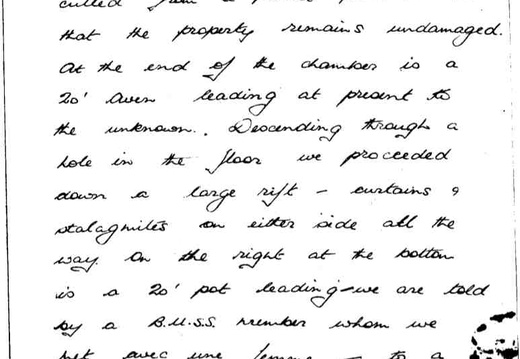 culled from a
that the property remains undamaged.
At the end of the chamber is a
20' Aven leading at present to
the unknown.. Descending through a
hole in the floor we proceeded
down a large rift – curtains &
stalagmites on either side all the
way. On the right at the bottom
is a 20' pot leading – we are told
by a B.U.S.S. member whom we
met avec une femme – to a